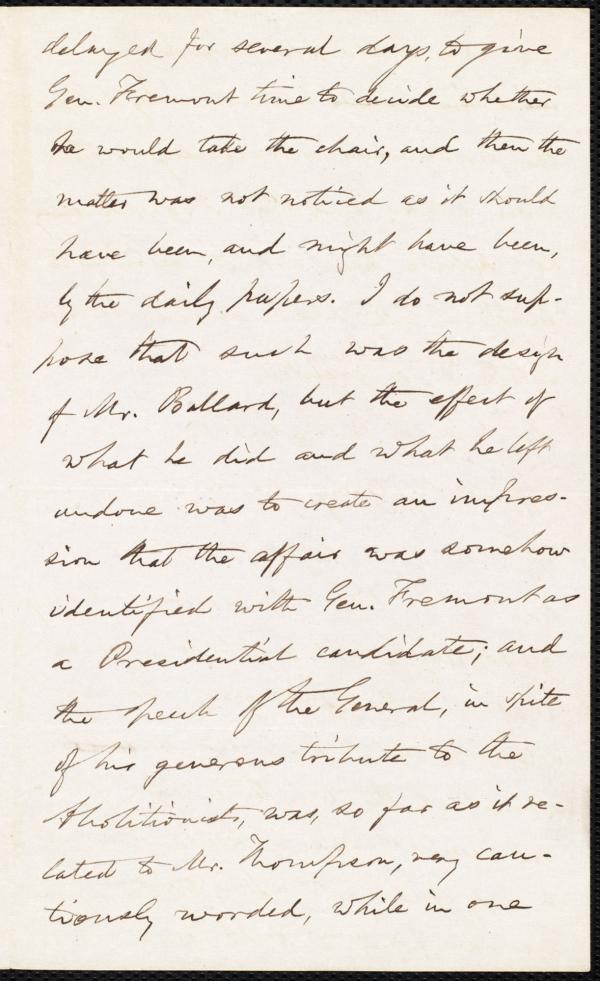 delayed for several days, to give
Gen. Fremont time to decide whether
he would take the chair, and then the
matter was not noticed as it should
have been, and might have been,
by the daily papers. I do not sup-
pose that such was the design
of Mr. Ballard, but the effect of
what he did and what he left
undone was to create an impres-
sion that the affair was somehow
identified with Gen. Fremont as
a Presidential candidate; and
the speech of the General, in spite
of his generous tribute to the
Abolitionists, was, so far as it re-
lated to Mr. Thompson, very cau-
tiously worded, while in one